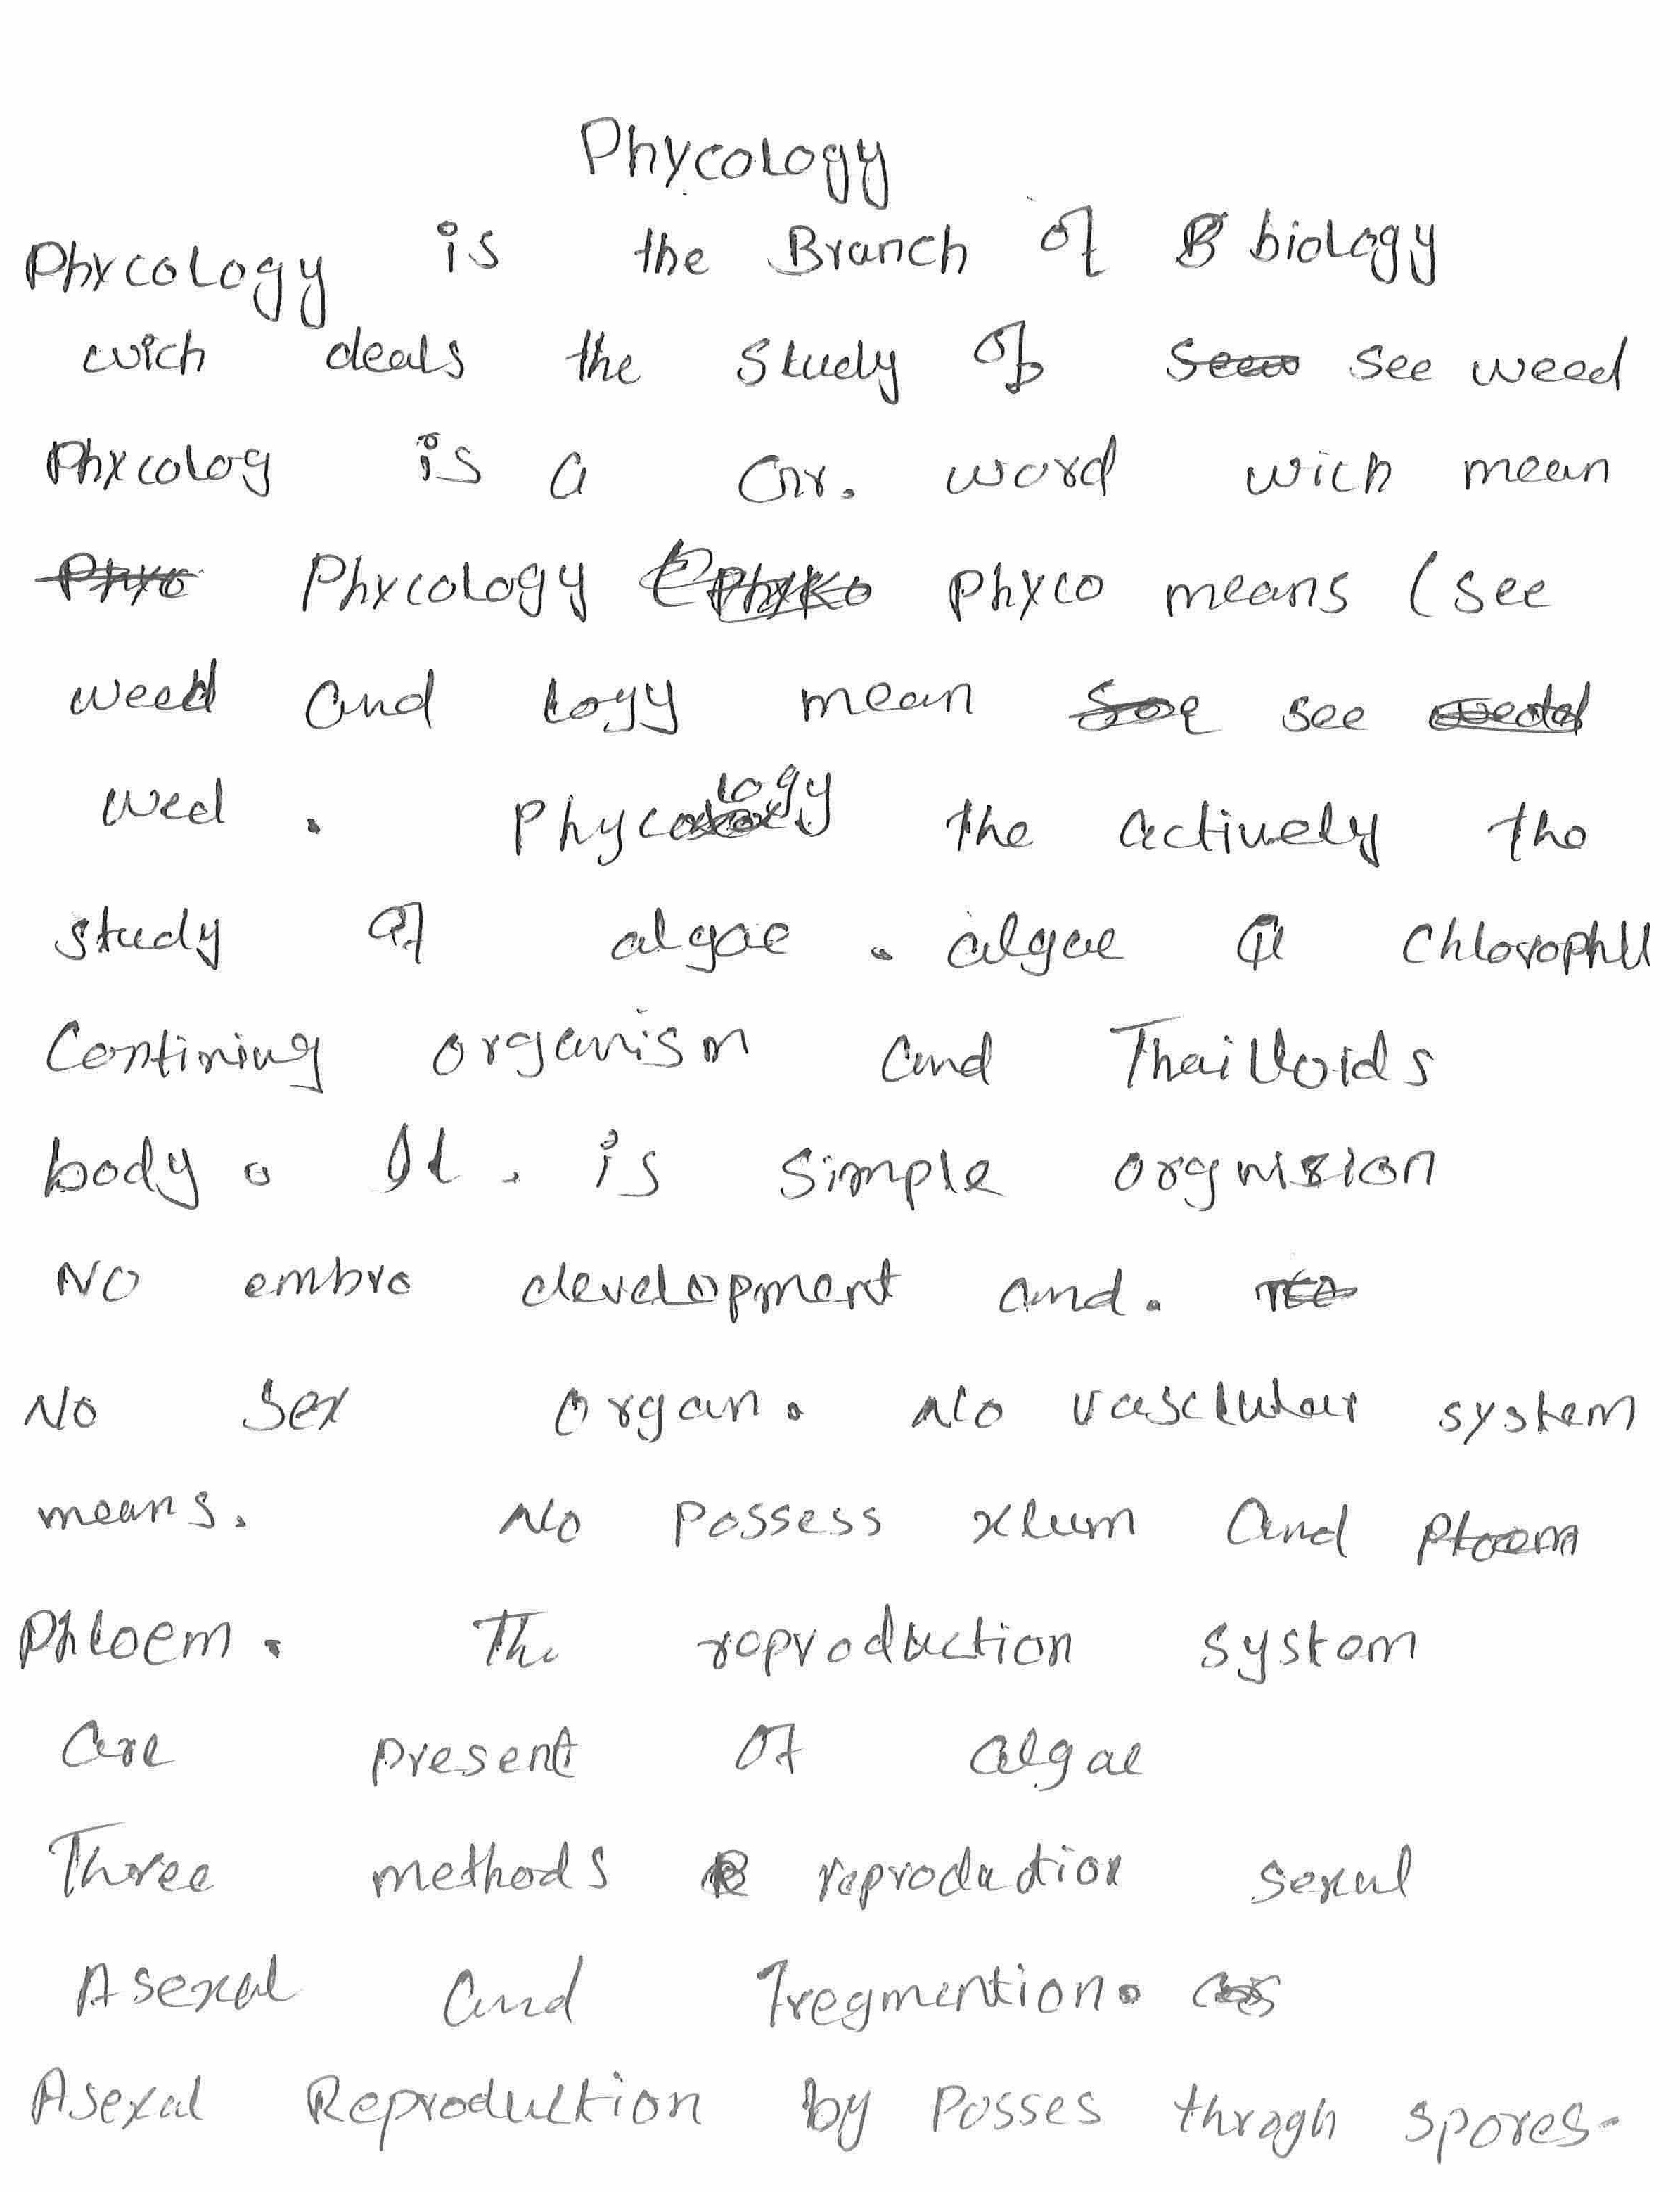 Phycology
Phycology is the Branch of biology
wich deals the Study of see weed
Phycolog is a Gr. word wich mean
Phycology Phyco means (see
weed and logy mean see
wed . Phycology the actively the
study of algae . algae a Chlorophll
Contining organism and Thailloids
body . It . is Simple orgnision
NO embro development and.
No Sex organ . No vasclular system
means . No Possess xlum and
Phloem . The reproduction system
are present of algae
Three methods reproduction sexul
Asexal and Fregmention .
Asexal Reproduction by Posses throgh spores-